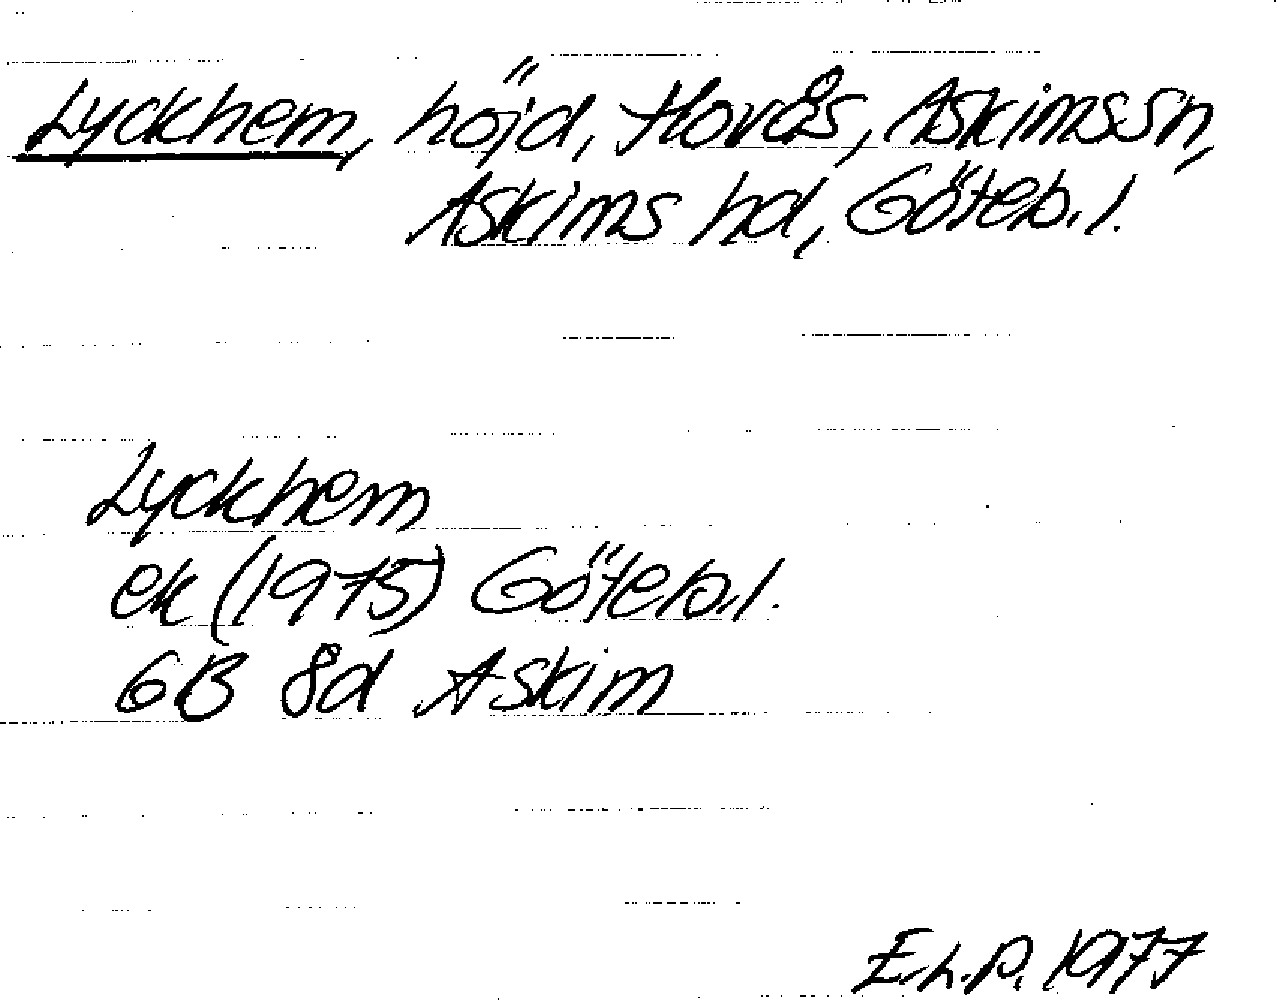 Lyckhem, höjd, Hovås, Askims sn,
Askims hd, Göteb. l.
Lyckhem
ek (1975) Göteb. l.
6B 8d Askim
E.L.P. 1977